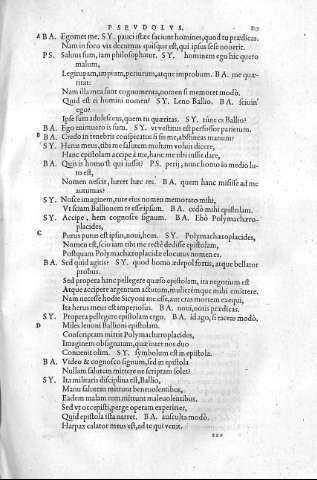 PSEVDOLVS. 857
A BA. Egomet me. SY. pauci istæc faciunt homines, quod tu prædicas.
Nam in foro vix decumus quisque est, qui ipsus sese nouerit.
PS. Saluus sum, iam philosophatur. SY. hominem ego hic quæro
malum,
Legirupam, impium, periurum, atque improbum. BA. me quæ-
ritat:
Nam illa mea sunt cognomenta, nomen si memoret modò.
Quid est ei homini nomen? SY. Leno Ballio. BA. sciuin'
ego?
Ipse sum adolescens, quem tu quæritas. SY. tune es Ballio?
BA. Ego enimuero is sum. SY. vt vestitus est perfossor parietum.
B BA. Credo in tenebris conspicatus si sis me, abstineas manum?
SY. Herus meus, tibi me salutem multam voluit dicere,
Hanc epistolam accipe à me, hanc me tibi iussit dare,
BA. Quis is homo est qui iussit? PS. perij, nunc homo in medio lu-
to est,
Nomen nescit, hæret hæc res. BA. quem hanc misisse ad me
autumas?
SY. Nosce imaginem, tute eius nomen memorato mihi,
Vt sciam Ballionem te esse ipsum. BA. cedò mihi epistolam.
SY. Accipe, hem cognosce signum. BA. Ehò Polymachæro-
placides,
C Purus putus est ipsus, noui, hem. SY. Polymachæroplacides,
Nomen est, scio iam tibi me rectè dedisse epistolam,
Postquam Polymachæroplacidæ elocutus nomen es.
BA. Sed quid agitis? SY. quod homo ædepol fortis, atque bellator
probus.
Sed propera hanc pellegere quæso epistolam, ita negotium est
Atque accipere argentum actutum, mulierémque mihi emittere.
Nam necesse hodie Sicyoni me esse, aut cras mortem exequi,
Ita herus meus est imperiosus. BA. noui, notis prædicas.
SY. Propera pellegere epistolam ergo. BA. id ago, si taceas modò,
D Miles lenoni Ballioni epistolam.
Conscriptam mittit Polymachæroplacides,
Imagine obsignatam, quæ inter nos duo
Conuenit olim. SY. symbolum est in epistola.
BA. Video & cognosco signum, sed in epistola
Nullam salutem mittere ne scriptam solet?
SY. Ita militaris disciplina est, Ballio,
Manu salutem mittunt beneuolentibus,
Eadem malam rem mittunt maleuolentibus.
Sed vt occepisti, perge operam experirier,
Quid epistola ista narret. BA. ausculta modò.
Harpax calator meus est, ad te qui venit.